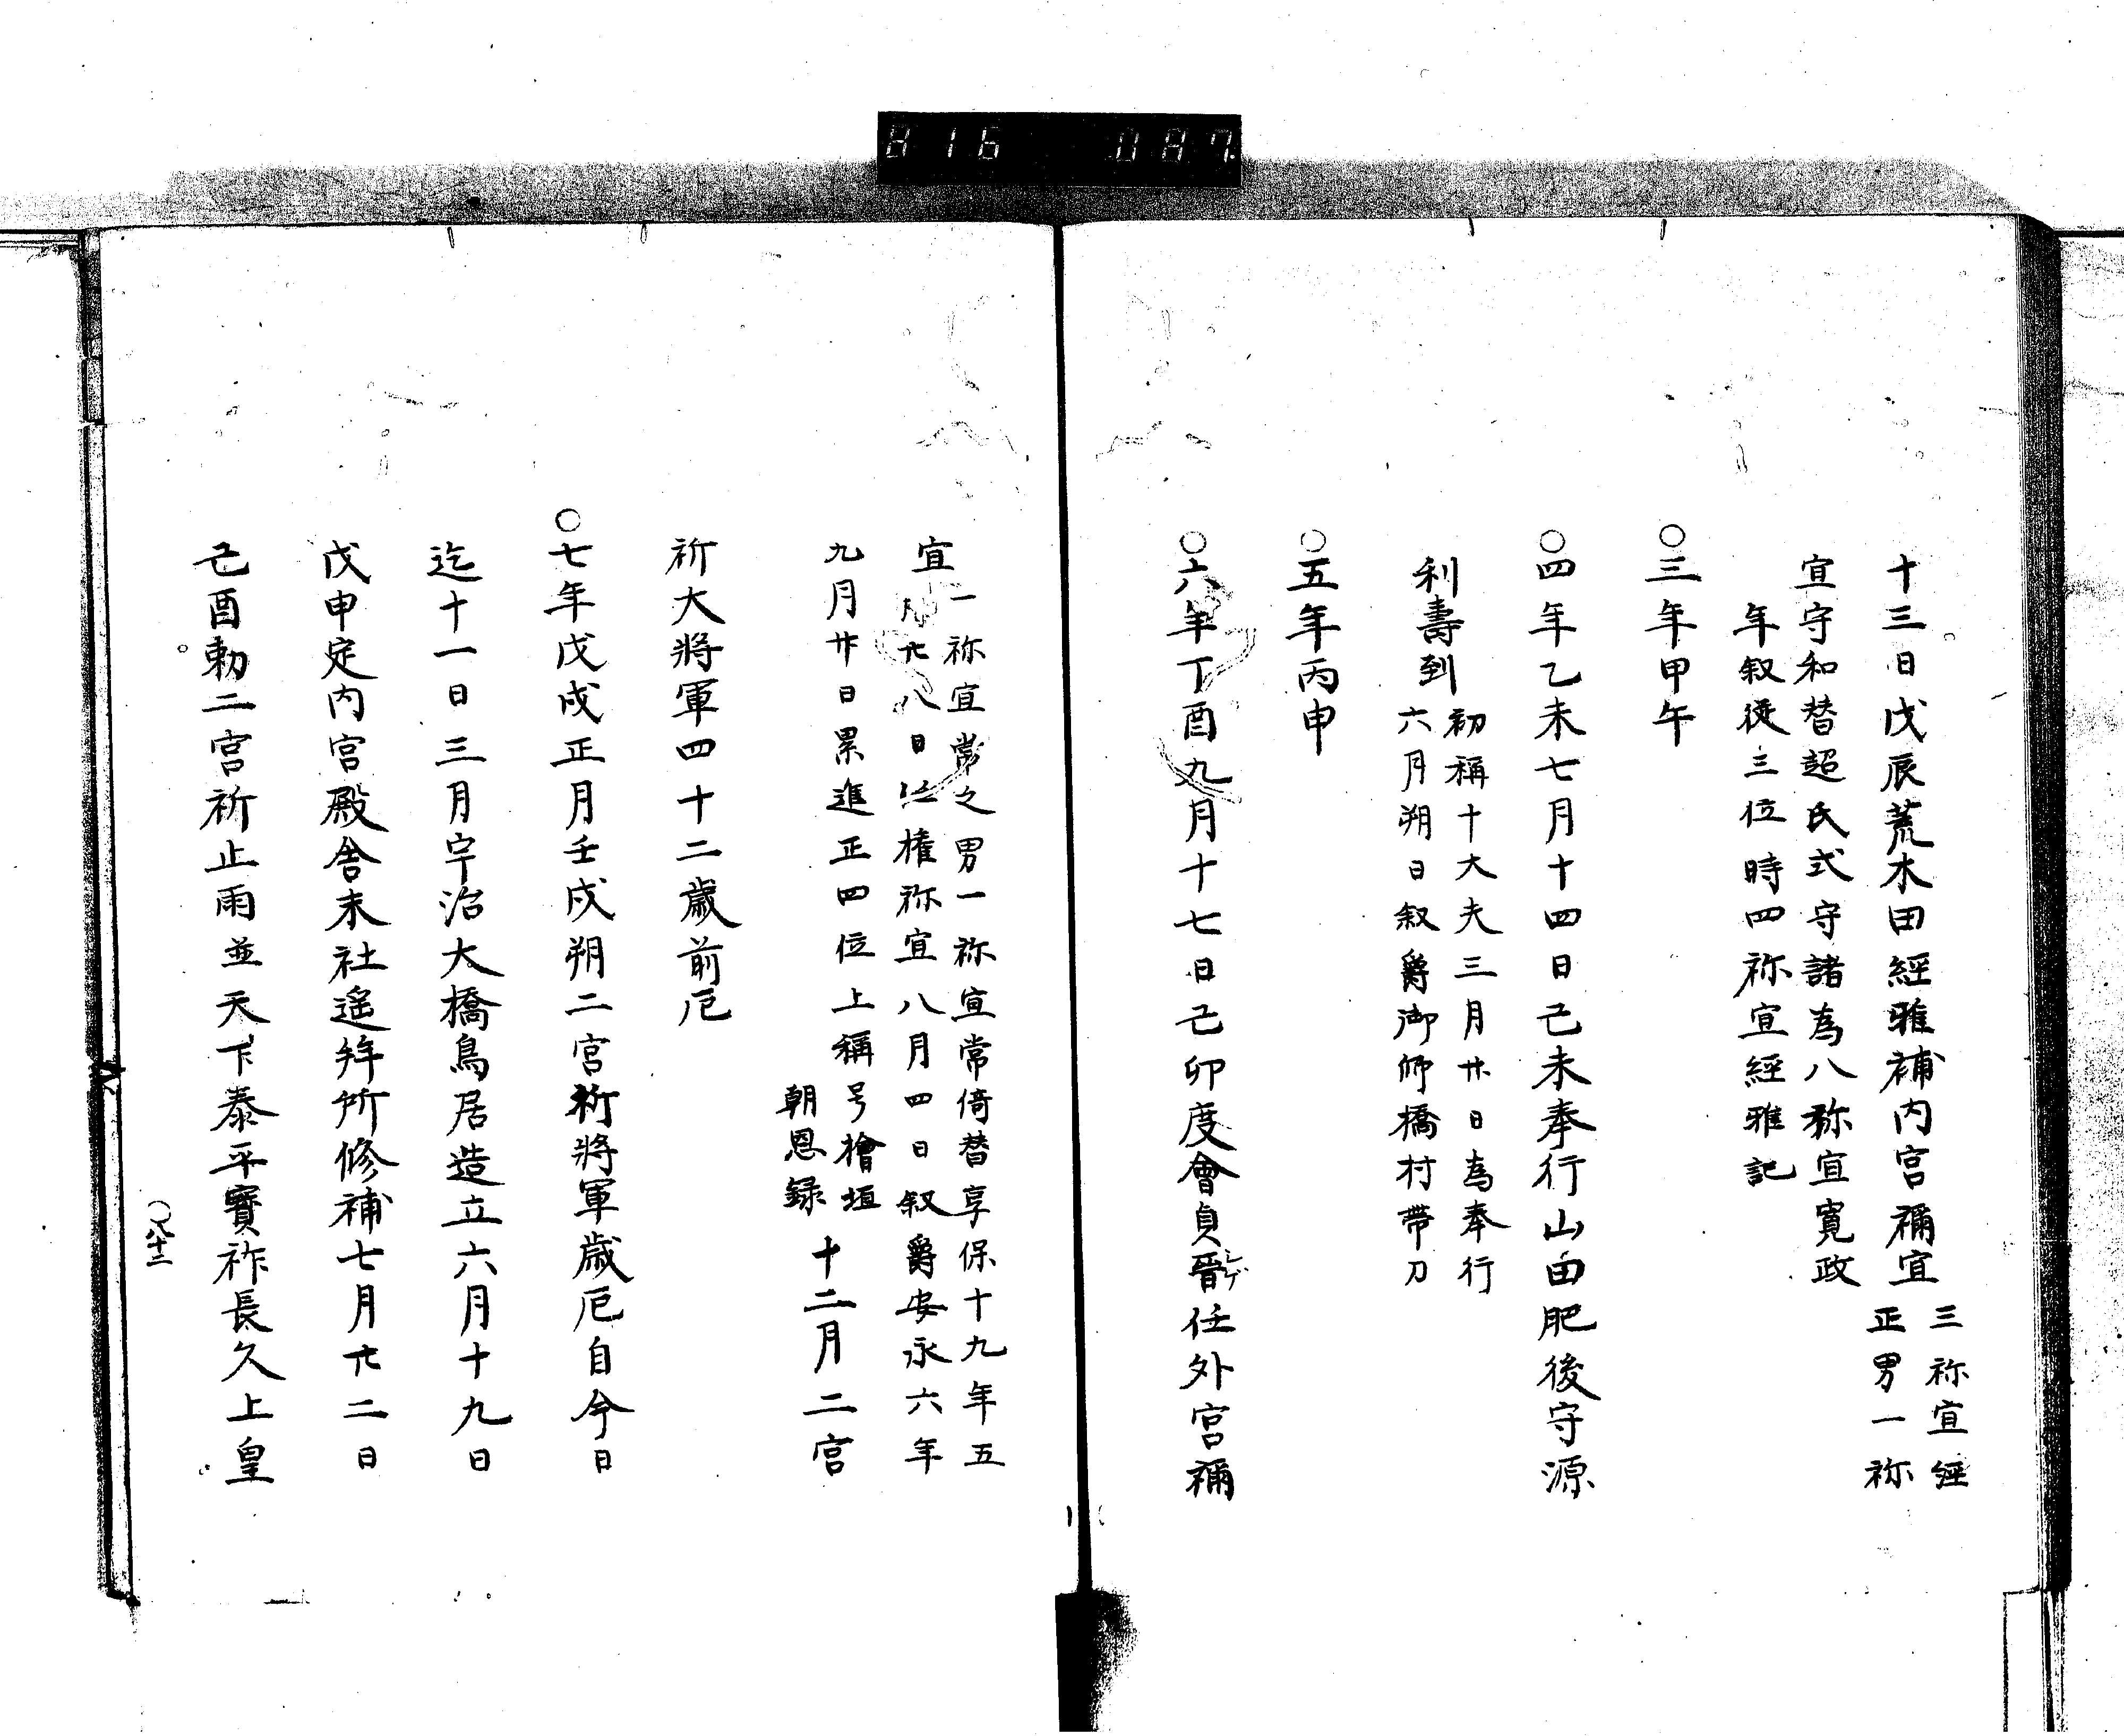 816 087
十三日戊辰荒木田經雅補内宮禰宜
三祢宜經
正男一祢
宜守和替超氏式守諸為八祢宜寛政
年叙従三位時四祢宜經雅記
○三年甲午
○四年乙未七月十四日己未奉行山田肥後守源
利壽到
初稱十大夫三月廿日為奉行
六月朔日叙爵御師橋村帯刀
○五年丙申
○六年丁酉九月十七日己卯度會貞晉任外宮禰
宜
一祢宜常之男一祢宜常倚替享保十九年五
月六八日任権祢宜八月四日叙爵安永六年
九月廿日累進正四位上稱号檜垣
朝恩録
十二月二宮
祈大將軍四十二歳前厄
○七年戊戌正月壬戌朔二宮祈將軍歳厄自今日
迄十一日三月宇治大橋鳥居造立六月十九日
戊申定内宮殿舎末社遥拝所修補七月六二日
己酉勅二宮祈止雨並天下泰平寳祚長久上皇
○八十二